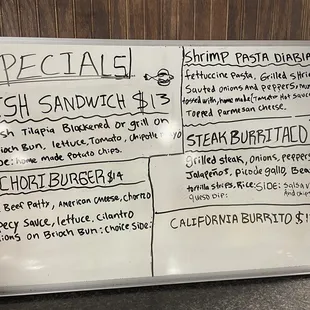 PECIALS
ISH SANDWICH $13
sh Tilapia Blackened or grill on
ioch Bun, lettuce, Tomato, chipotle
DE: home made potato chips.
CHORI BURGER $14
Beef Patty, American cheese, chorizo
pecy sauce, lettuce, cilantro
ions on Brioch Bun: choice Side:
Shrimp PASTA DIABLA
fettuccine Pasta, Grilled shri
Sauted onions And Peppers, mu
tossed with, home made (Tomato Hot sauce
Topped Parmesan cheese.
STEAK BURRITACO
grilled steak, onions, peppers
Jalapeños, pico de gallo, Bea
tortilla strips, Rice: SIDE: salsa
And chips
queso Dip:
CALIFORNIA BURRITO $1